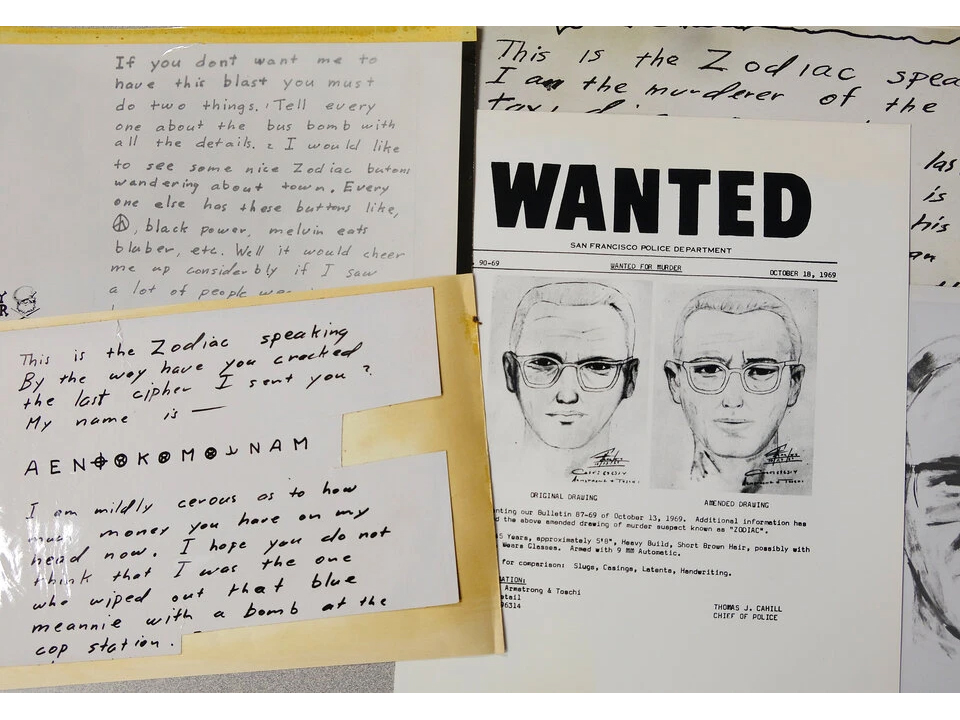 If you dont want me to
have this blast you must
do two things. 1 Tell every
one about the bus bomb with
all the details. 2 I would like
to see some nice Zodiac butons
wandering about town. Every
one else has these buttons like,
☮, black power, melvin eats
bluber, etc. Well it would cheer
me up considerbly if I saw
a lot of people
This is the Zodiac speaking
By the way have you cracked
the last cipher I sent you ?
My name is —
A E N ⌖ ⊗ K ⊗ M ⊗ ⅃ N A M
I am mildly cerous as to how
much money you have on my
head now. I hope you do not
think that I was the one
who wiped out that blue
meannie with a bomb at the
cop station.
This is the Zodiac spea
I am the murderer of the
las
is
his
an
WANTED
SAN FRANCISCO POLICE DEPARTMENT
90-69 WANTED FOR MURDER OCTOBER 18, 1969
ORIGINAL DRAWING AMENDED DRAWING
nting our Bulletin 87-69 of October 13, 1969. Additional information has
d the above amended drawing of murder suspect known as "ZODIAC".
5 Years, approximately 5'8", Heavy Build, Short Brown Hair, possibly with
Wears Glasses. Armed with 9 MM Automatic.
for comparison: Slugs, Casings, Latents, Handwriting.
ATION:
Armstrong & Toschi
etail
96314
THOMAS J. CAHILL
CHIEF OF POLICE